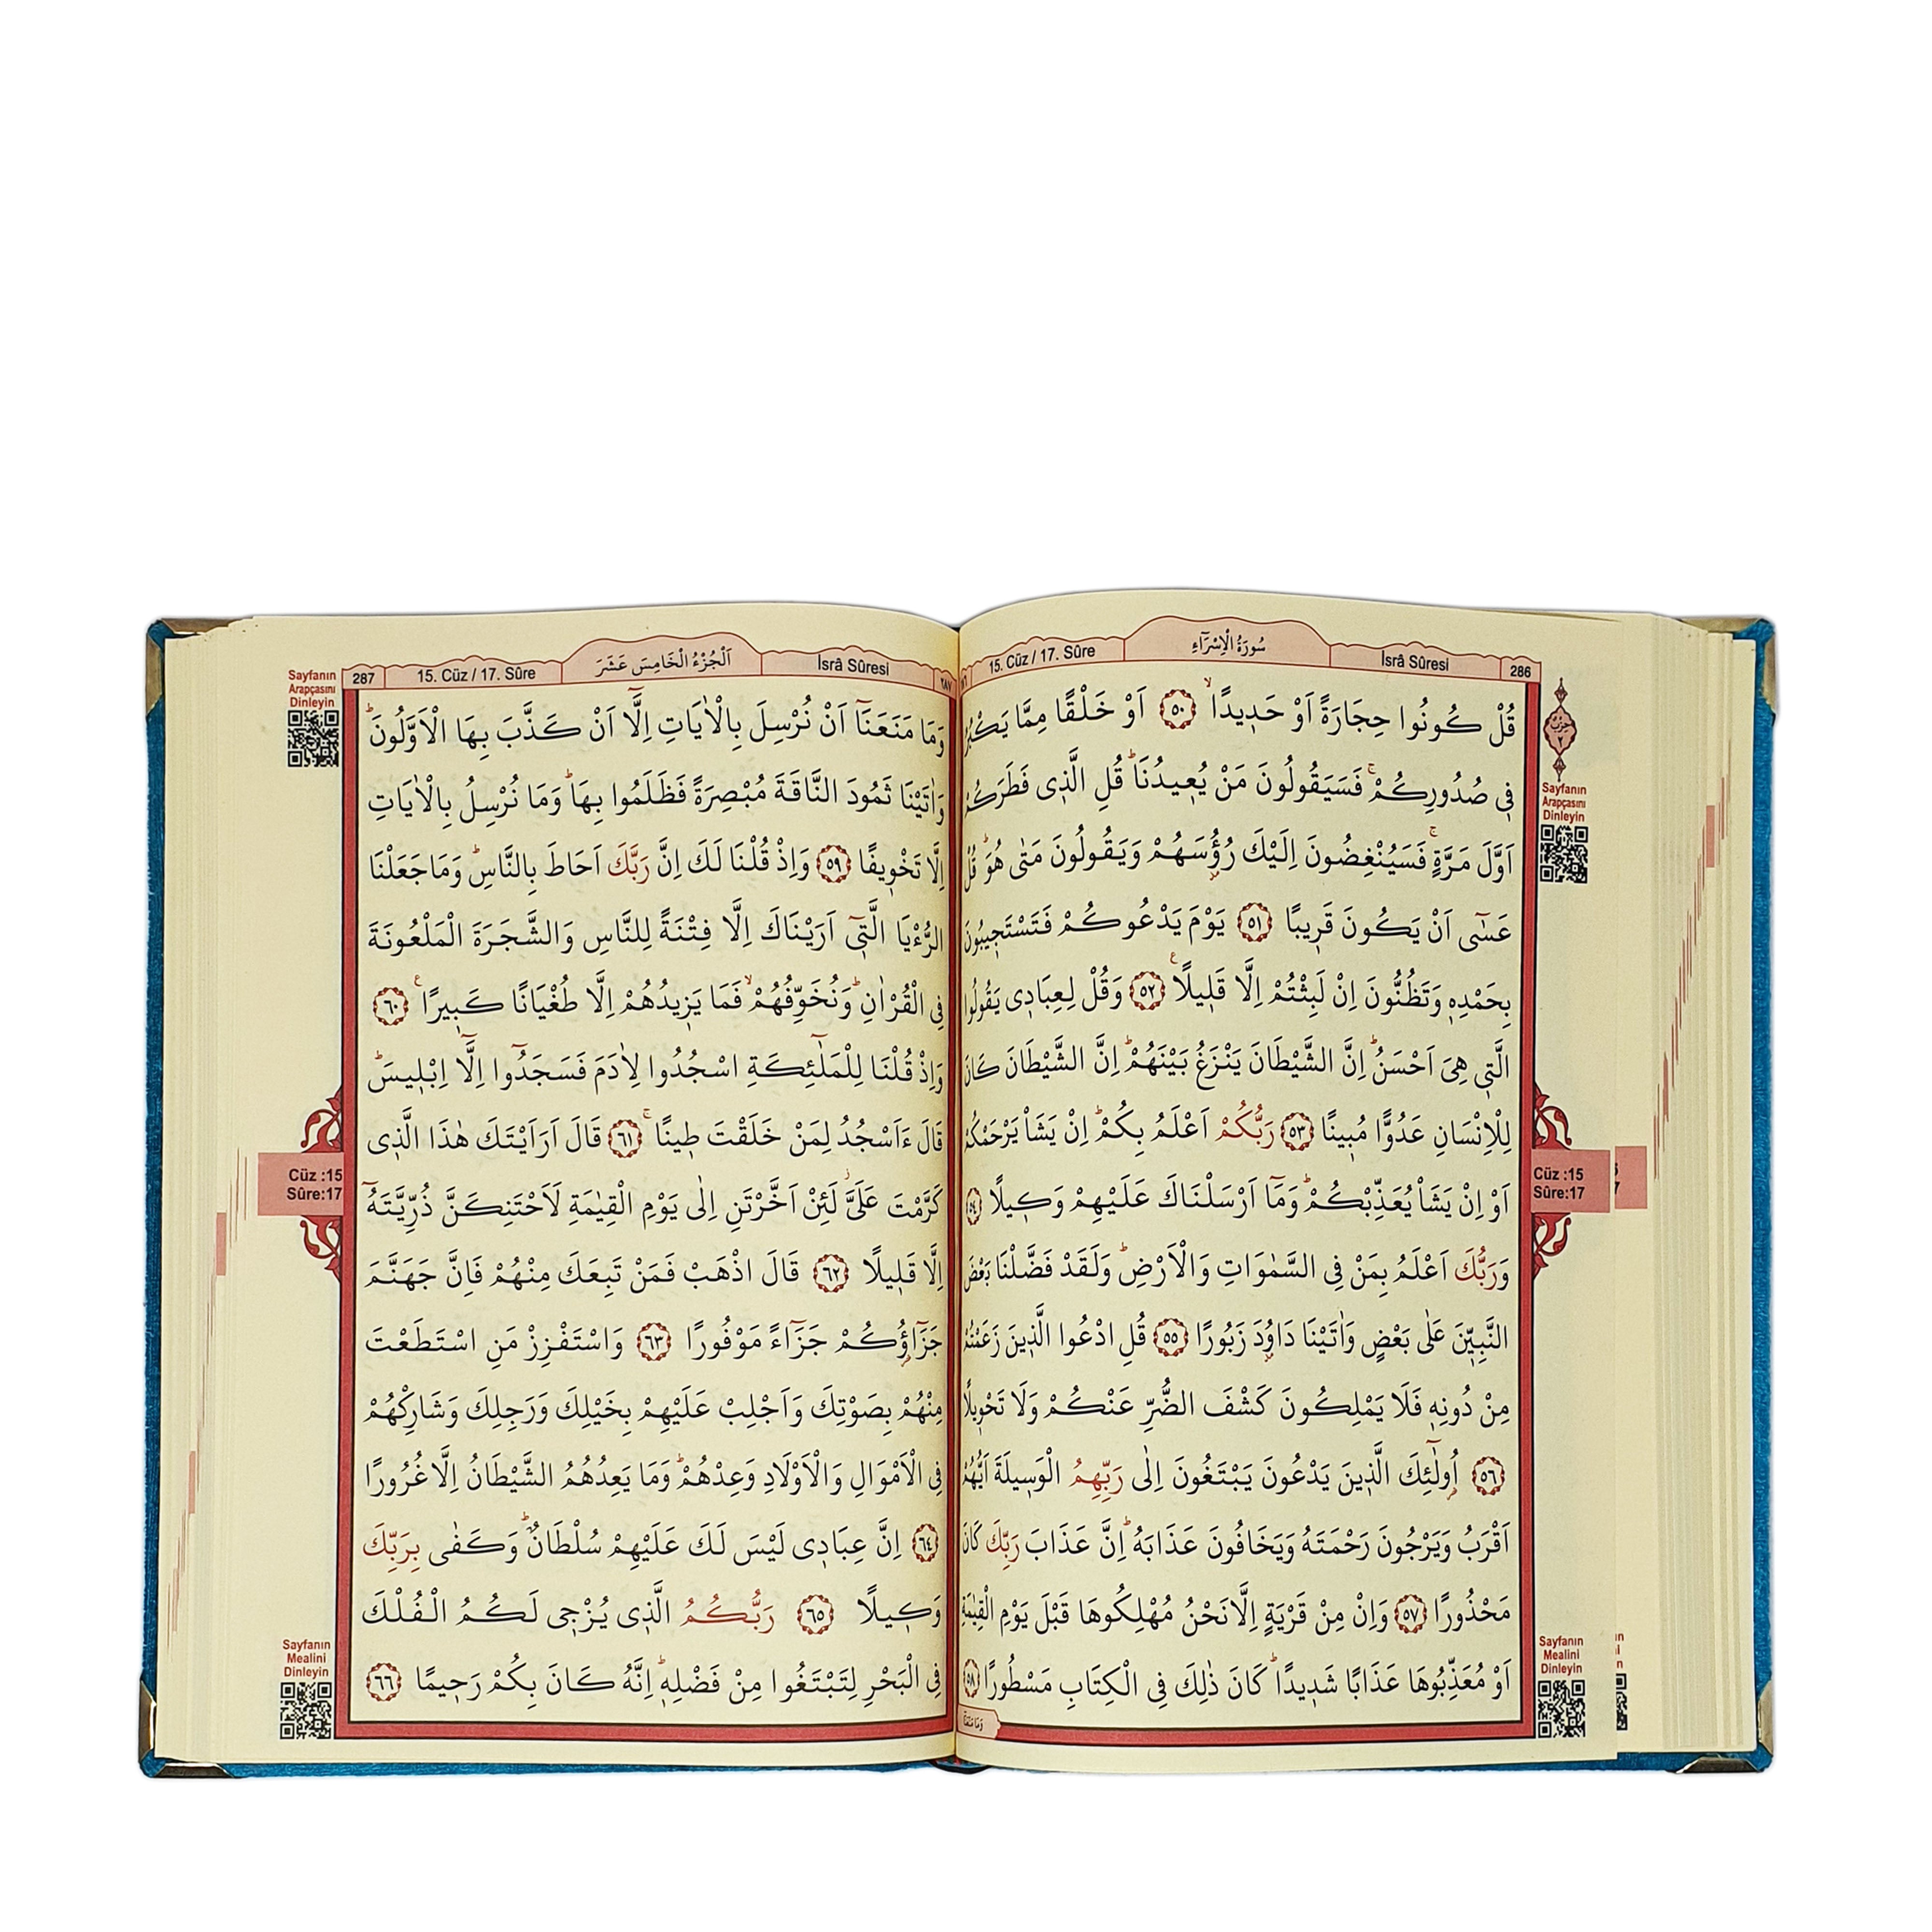 286
İsrâ Sûresi
سُورَةُ الْاِسْرَٓاءِ
15. Cüz / 17. Sûre
قُلْ كُونُوا حِجَارَةً اَوْ حَد۪يدًاۙ ﴿٥٠﴾ اَوْ خَلْقًا مِمَّا يَكْبُرُ
ف۪ي صُدُورِكُمْۚ فَسَيَقُولُونَ مَنْ يُع۪يدُنَاۜ قُلِ الَّذ۪ي فَطَرَكُمْ
اَوَّلَ مَرَّةٍۚ فَسَيُنْغِضُونَ اِلَيْكَ رُؤُ۫سَهُمْ وَيَقُولُونَ مَتٰى هُوَۜ قُلْ
عَسٰٓى اَنْ يَكُونَ قَر۪يبًا ﴿٥١﴾ يَوْمَ يَدْعُوكُمْ فَتَسْتَج۪يبُونَ
بِحَمْدِه۪ وَتَظُنُّونَ اِنْ لَبِثْتُمْ اِلَّا قَل۪يلًا۟ ﴿٥٢﴾ وَقُلْ لِعِبَاد۪ي يَقُولُوا
الَّت۪ي هِيَ اَحْسَنُۜ اِنَّ الشَّيْطَانَ يَنْزَغُ بَيْنَهُمْۜ اِنَّ الشَّيْطَانَ كَانَ
لِلْاِنْسَانِ عَدُوًّا مُب۪ينًا ﴿٥٣﴾ رَبُّكُمْ اَعْلَمُ بِكُمْۜ اِنْ يَشَأْ يَرْحَمْكُمْ
اَوْ اِنْ يَشَأْ يُعَذِّبْكُمْۜ وَمَٓا اَرْسَلْنَاكَ عَلَيْهِمْ وَك۪يلًا ﴿٥٤﴾
وَرَبُّكَ اَعْلَمُ بِمَنْ فِي السَّمٰوَاتِ وَالْاَرْضِۜ وَلَقَدْ فَضَّلْنَا بَعْضَ
النَّبِيّ۪نَ عَلٰى بَعْضٍ وَاٰتَيْنَا دَاوُ۫دَ زَبُورًا ﴿٥٥﴾ قُلِ ادْعُوا الَّذ۪ينَ زَعَمْتُمْ
مِنْ دُونِه۪ فَلَا يَمْلِكُونَ كَشْفَ الضُّرِّ عَنْكُمْ وَلَا تَحْو۪يلًا
﴿٥٦﴾ اُو۬لٰٓئِكَ الَّذ۪ينَ يَدْعُونَ يَبْتَغُونَ اِلٰى رَبِّهِمُ الْوَس۪يلَةَ اَيُّهُمْ
اَقْرَبُ وَيَرْجُونَ رَحْمَتَهُ وَيَخَافُونَ عَذَابَهُۜ اِنَّ عَذَابَ رَبِّكَ كَانَ
مَحْذُورًا ﴿٥٧﴾ وَاِنْ مِنْ قَرْيَةٍ اِلَّا نَحْنُ مُهْلِكُوهَا قَبْلَ يَوْمِ الْقِيٰمَةِ
اَوْ مُعَذِّبُوهَا عَذَابًا شَد۪يدًاۜ كَانَ ذٰلِكَ فِي الْكِتَابِ مَسْطُورًا ﴿٥٨﴾
وَمَا مَنَعَنَٓا
حِزْبْ
٢
Sayfanın
Arapçasını
Dinleyin
Cüz :15
Sûre:17
Sayfanın
Mealini
Dinleyin
٢٨٧
İsrâ Sûresi
اَلْجُزْءُ الْخَامِسَ عَشَرَ
15. Cüz / 17. Sûre
287
وَمَا مَنَعَنَٓا اَنْ نُرْسِلَ بِالْاٰيَاتِ اِلَّٓا اَنْ كَذَّبَ بِهَا الْاَوَّلُونَۜ
وَاٰتَيْنَا ثَمُودَ النَّاقَةَ مُبْصِرَةً فَظَلَمُوا بِهَاۜ وَمَا نُرْسِلُ بِالْاٰيَاتِ
اِلَّا تَخْو۪يفًا ﴿٥٩﴾ وَاِذْ قُلْنَا لَكَ اِنَّ رَبَّكَ اَحَاطَ بِالنَّاسِۜ وَمَا جَعَلْنَا
الرُّءْيَا الَّت۪ٓي اَرَيْنَاكَ اِلَّا فِتْنَةً لِلنَّاسِ وَالشَّجَرَةَ الْمَلْعُونَةَ
فِي الْقُرْاٰنِۜ وَنُخَوِّفُهُمْۙ فَمَا يَز۪يدُهُمْ اِلَّا طُغْيَانًا كَب۪يرًا۟ ﴿٦٠﴾
وَاِذْ قُلْنَا لِلْمَلٰٓئِكَةِ اسْجُدُوا لِاٰدَمَ فَسَجَدُٓوا اِلَّٓا اِبْل۪يسَۜ
قَالَ ءَاَسْجُدُ لِمَنْ خَلَقْتَ ط۪ينًاۚ ﴿٦١﴾ قَالَ اَرَاَيْتَكَ هٰذَا الَّذ۪ي
كَرَّمْتَ عَلَيَّۘ لَئِنْ اَخَّرْتَنِ اِلٰى يَوْمِ الْقِيٰمَةِ لَاَحْتَنِكَنَّ ذُرِّيَّتَهُٓ
اِلَّا قَل۪يلًا ﴿٦٢﴾ قَالَ اذْهَبْ فَمَنْ تَبِعَكَ مِنْهُمْ فَاِنَّ جَهَنَّمَ
جَزَٓاؤُ۬كُمْ جَزَٓاءً مَوْفُورًا ﴿٦٣﴾ وَاسْتَفْزِزْ مَنِ اسْتَطَعْتَ
مِنْهُمْ بِصَوْتِكَ وَاَجْلِبْ عَلَيْهِمْ بِخَيْلِكَ وَرَجِلِكَ وَشَارِكْهُمْ
فِي الْاَمْوَالِ وَالْاَوْلَادِ وَعِدْهُمْۜ وَمَا يَعِدُهُمُ الشَّيْطَانُ اِلَّا غُرُورًا
﴿٦٤﴾ اِنَّ عِبَاد۪ي لَيْسَ لَكَ عَلَيْهِمْ سُلْطَانٌۜ وَكَفٰى بِرَبِّكَ
وَك۪يلًا ﴿٦٥﴾ رَبُّكُمُ الَّذ۪ي يُزْج۪ي لَكُمُ الْفُلْكَ
فِي الْبَحْرِ لِتَبْتَغُوا مِنْ فَضْلِه۪ۜ اِنَّهُ كَانَ بِكُمْ رَح۪يمًا ﴿٦٦﴾
Sayfanın
Arapçasını
Dinleyin
Cüz :15
Sûre:17
Sayfanın
Mealini
Dinleyin